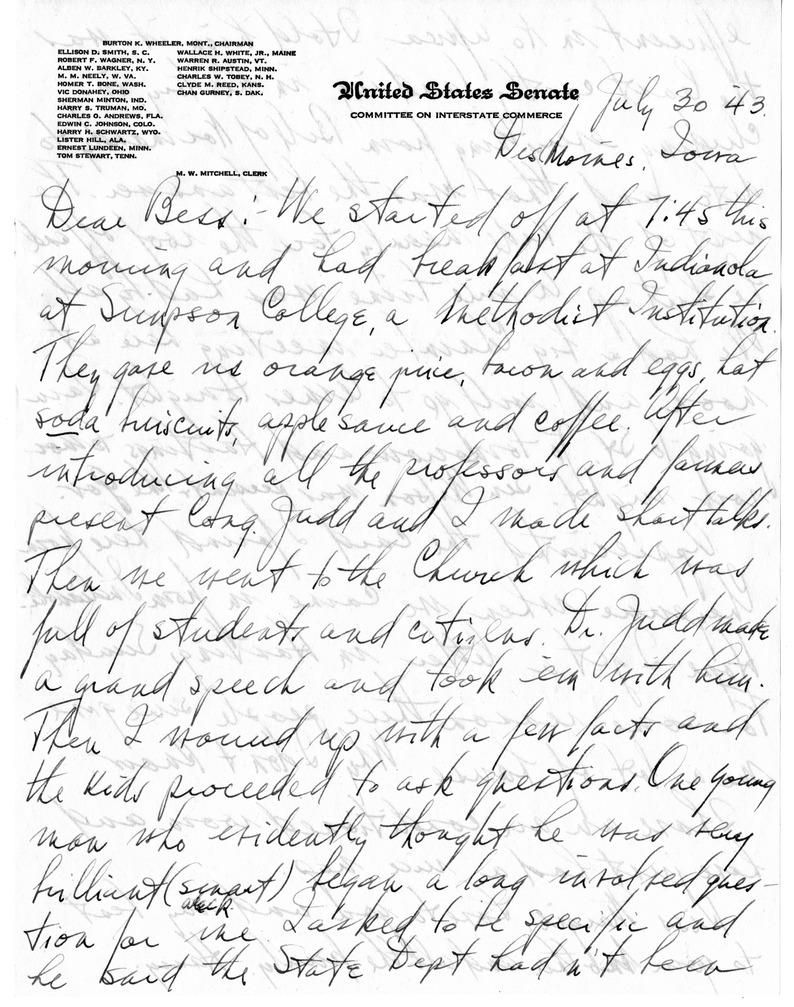 BURTON K. WHEELER, MONT., CHAIRMAN
ELLISON D. SMITH, S. C.
ROBERT F. WAGNER, N. Y.
ALBEN W. BARKLEY, KY.
M. M. NEELY, W. VA.
HOMER T. BONE, WASH.
VIC DONAHEY, OHIO
SHERMAN MINTON, IND.
HARRY S. TRUMAN, MO.
CHARLES O. ANDREWS, FLA.
EDWIN C. JOHNSON, COLO.
HARRY H. SCHWARTZ, WYO.
LISTER HILL, ALA.
ERNEST LUNDEEN, MINN.
TOM STEWART, TENN.
WALLACE H. WHITE, JR., MAINE
WARREN R. AUSTIN, VT.
HENRIK SHIPSTEAD, MINN.
CHARLES W. TOBEY, N. H.
CLYDE M. REED, KANS.
CHAN GURNEY, S. DAK.
M. W. MITCHELL, CLERK
United States Senate
COMMITTEE ON INTERSTATE COMMERCE
July 30 '43.
Des Moines, Iowa
Dear Bess:- We started off at 7:45 this
morning and had breakfast at Indianola
at Simpson College, a Methodist Institution.
They gave us orange juice, bacon and eggs, hot
soda buiscuits, apple sauce and coffee. After
introducing all the professors and farmers
present Cong. Judd and I made short talks.
Then we went to the Church which was
full of students and citizens. Dr. Judd made
a grand speech and took 'em with him.
Then I wound up with a few facts and
the kids proceeded to ask questions. One young
man who evidently thought he was very
brilliant (smart aleck) began a long involved ques-
tion for me. I asked to be specific and
he said the State Dept had n't been